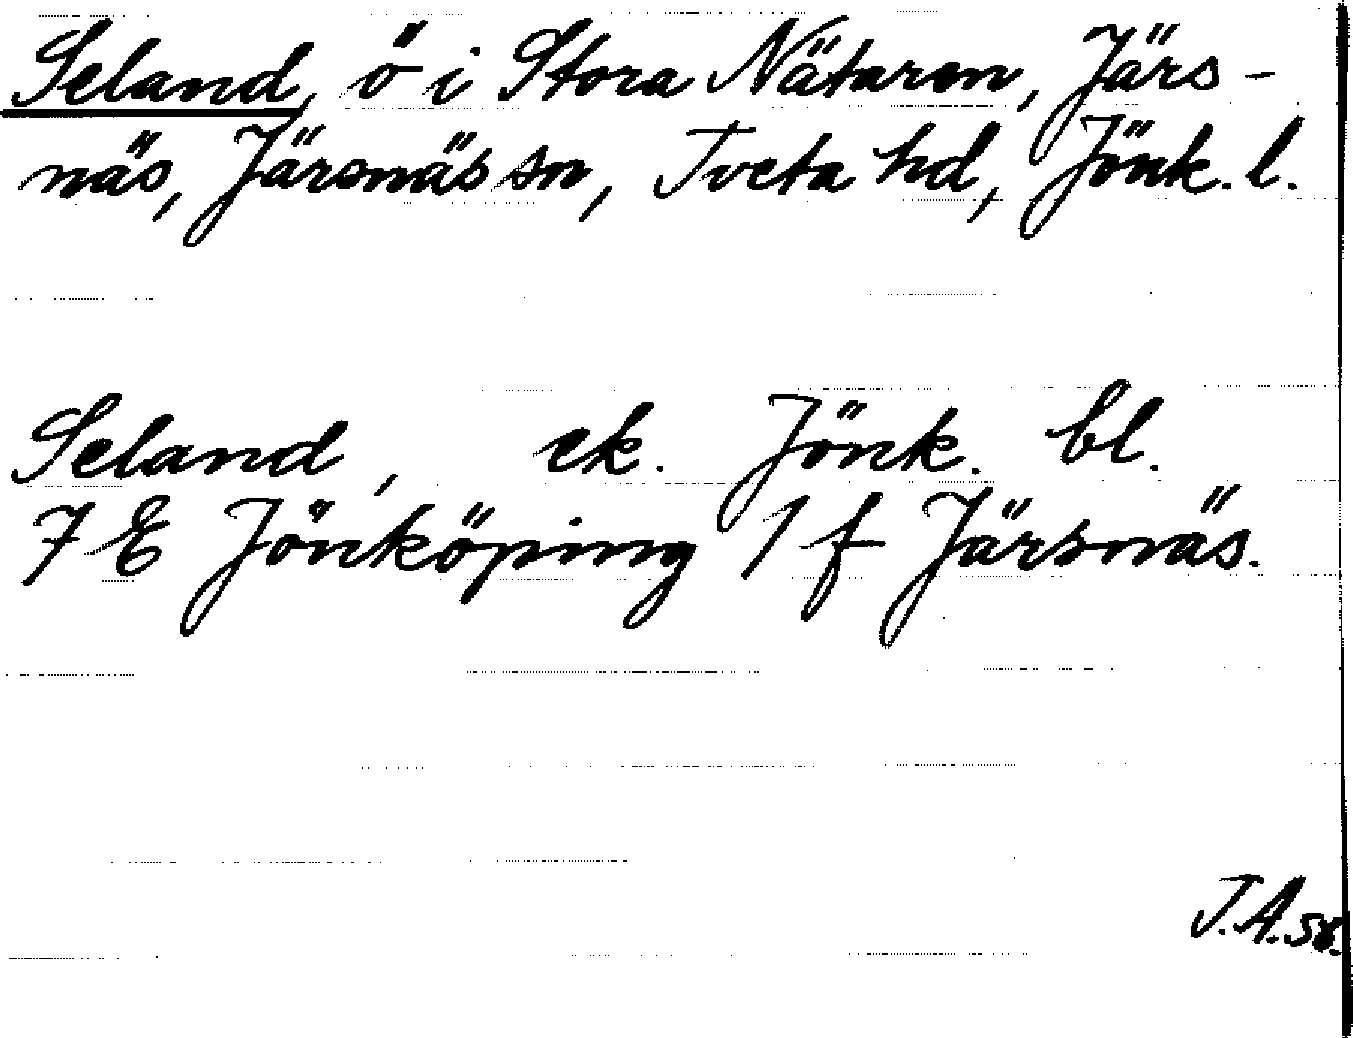 Seland, ö i Stora Nätaren, Järs-
näs, Järsnäs sn, Tveta hd, Jönk. l.
Seland, ek. Jönk. bl.
7 E Jönköping 1 f Järsnäs.
J.A.